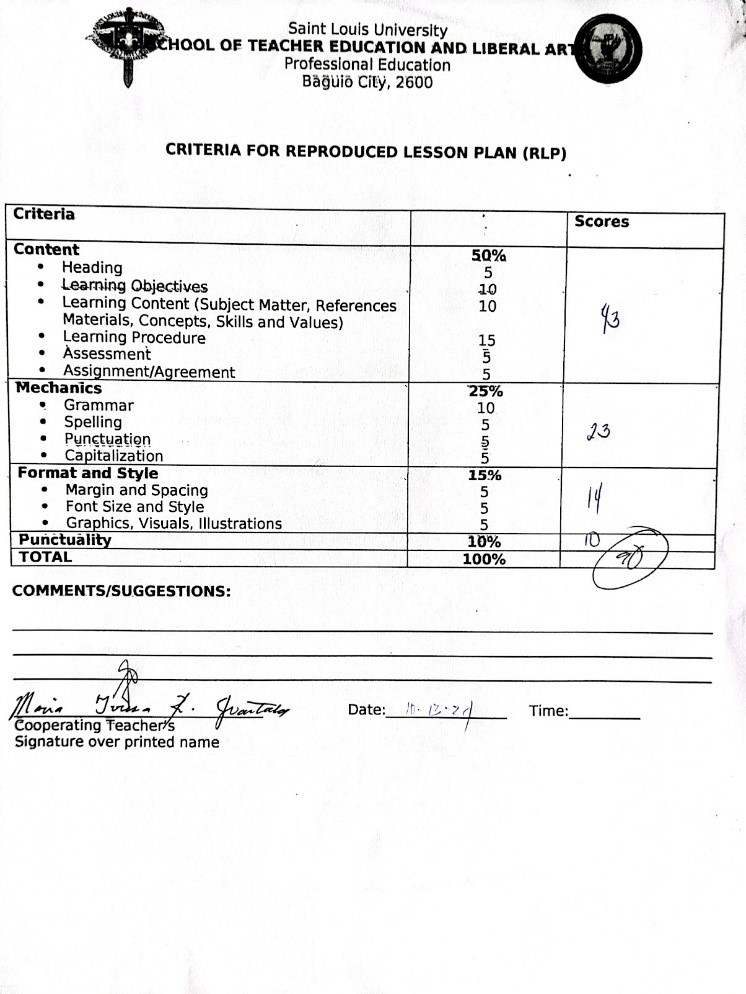 Saint Louis University
CHOOL OF TEACHER EDUCATION AND LIBERAL ART
Professional Education
Baguio City, 2600
CRITERIA FOR REPRODUCED LESSON PLAN (RLP)
Criteria : Scores
Content 50%
• Heading 5
• Learning Objectives 10
• Learning Content (Subject Matter, References 10
Materials, Concepts, Skills and Values) 43
• Learning Procedure 15
• Assessment 5
• Assignment/Agreement 5
Mechanics 25%
• Grammar 10
• Spelling 5
• Punctuation 5 23
• Capitalization 5
Format and Style 15%
• Margin and Spacing 5 14
• Font Size and Style 5
• Graphics, Visuals, Illustrations 5
Punctuality 10% 10
TOTAL 100% 90
COMMENTS/SUGGESTIONS:
Maria
Date: Time:
Cooperating Teacher's
Signature over printed name